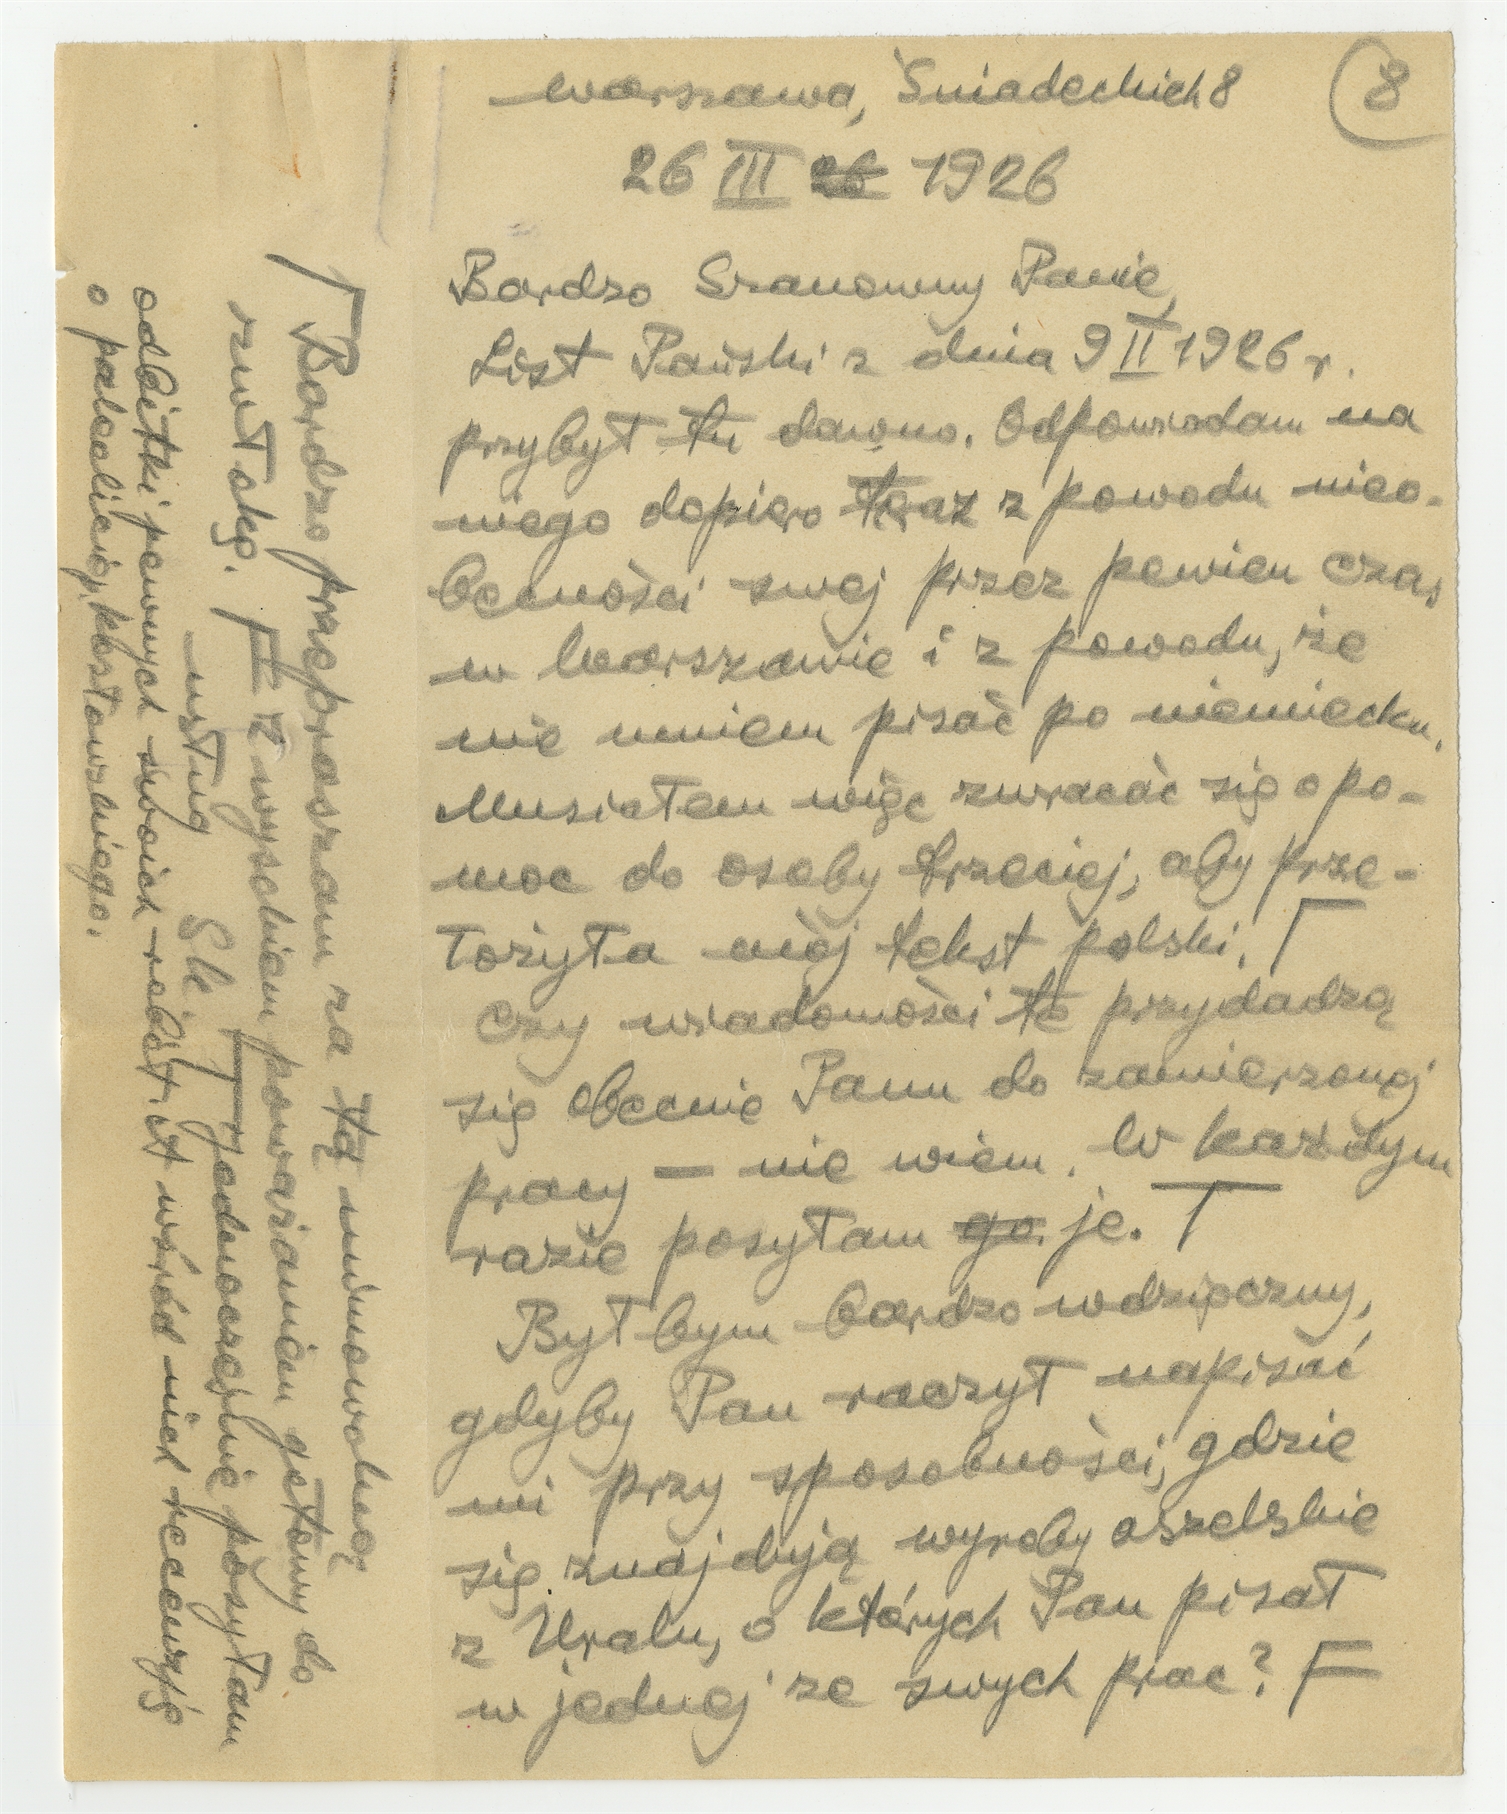 Warszawa, Śniadeckich 8
8
26 III 26 1926
Bardzo Szanowny Panie,
List Pański z dnia 9 II 1926 r.
przybył tu dawno. Odpowiadam na
niego dopiero teraz z powodu nieo-
becności swej przez pewien czas
w Warszawie i z powodu, że
nie umiem pisać po niemiecku.
Musiałem więc zwracać się o po-
moc do osoby trzeciej, aby prze-
łożyła mój tekst polski. Γ
Czy wiadomości te przydadzą
się obecnie Panu do zamierzonej
pracy — nie wiem. W każdym
razie posyłam go je. T
Byłbym bardzo wdzięczny,
gdyby Pan raczył napisać
mi przy sposobności, gdzie
się znajdują wyroby aszelskie
z Uralu, o których Pan pisał
w jednej ze swych prac? F
Γ Bardzo przepraszam za tę mimowolną
zwłokę. F Z wysokiem poważaniem gotowy do
usług SK T Jednocześnie posyłam
odbitki pewnych swoich robót, a wśród nich recenzję
o paleolicie Kostowskiego.